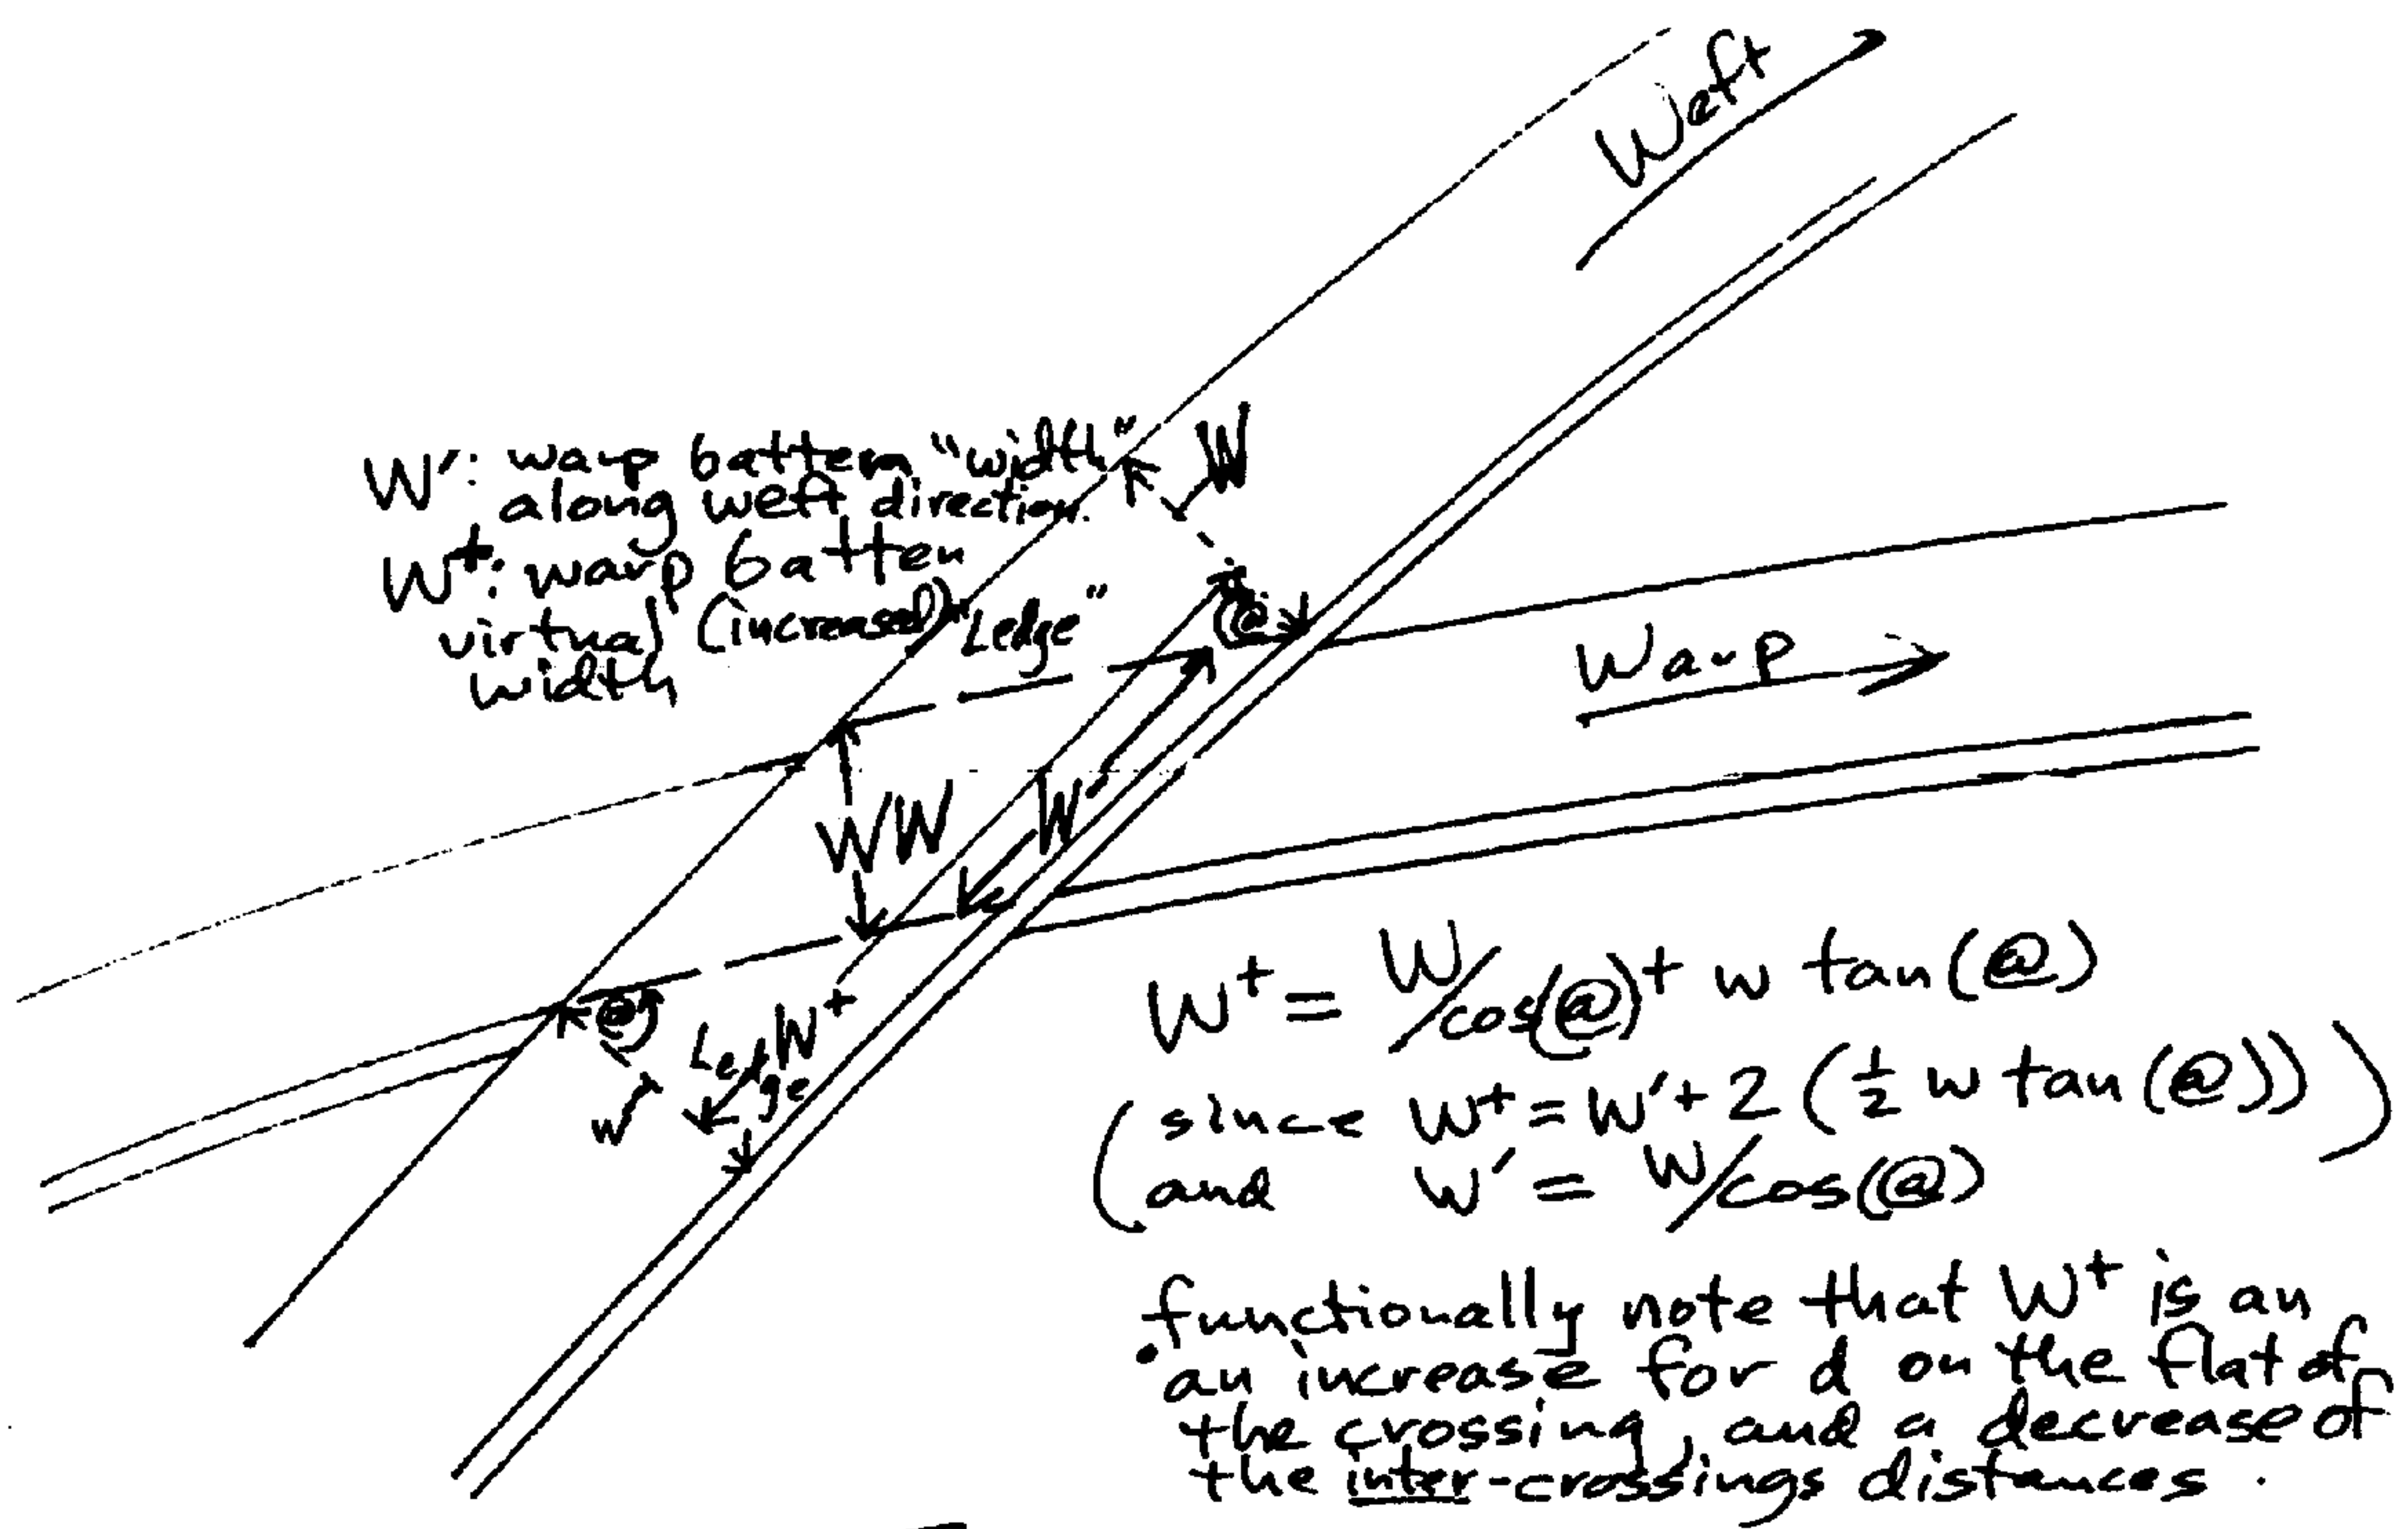 Weft
W': warp battem "width"
along weft direction.
W+: warp batten
virtual (increased)
width
W
"Ledge"
(@
Warp
WW
W'
@)
Ledge
W+
w
W+ = W/cos(@) + w tan(@)
(since W+ = W' + 2 (½ w tan(@)))
and W' = W/cos(@)
functionally note that W+ is an
• an increase for d on the flat of
the crossing, and a decrease of
the inter-crossings distances.